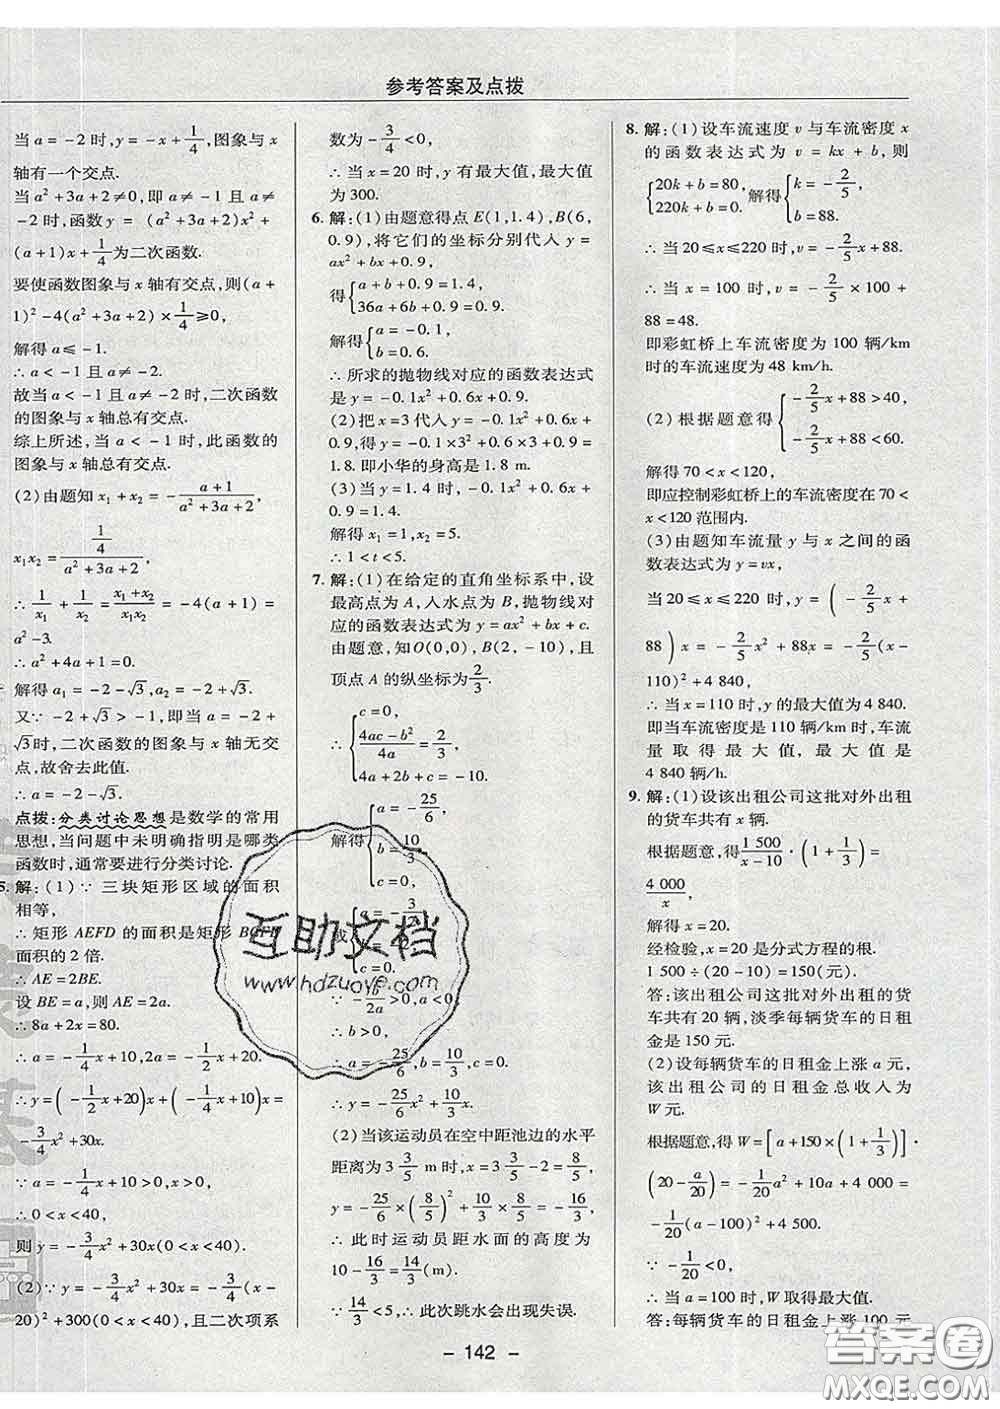 参考答案及点拨
当 a = -2 时, y = -x + 1/4, 图象与 x
轴有一个交点.
当 a² + 3a + 2 ≠ 0, 即 a ≠ -1 且 a ≠
-2 时, 函数 y = (a² + 3a + 2)x² +
(a + 1)x + 1/4 为二次函数.
要使函数图象与 x 轴有交点, 则 (a +
1)² - 4(a² + 3a + 2) × 1/4 ≥ 0,
解得 a ≤ -1.
∴ a < -1 且 a ≠ -2.
故当 a < -1 且 a ≠ -2 时, 二次函数
的图象与 x 轴总有交点.
综上所述, 当 a < -1 时, 此函数的
图象与 x 轴总有交点.
(2) 由题知 x₁ + x₂ = - (a + 1)/(a² + 3a + 2),
x₁x₂ = (1/4)/(a² + 3a + 2)
∴ 1/x₁ + 1/x₂ = (x₁ + x₂)/(x₁x₂) = -4(a + 1) =
a² - 3.
∴ a² + 4a + 1 = 0.
解得 a₁ = -2 - √3, a₂ = -2 + √3.
又∵ -2 + √3 > -1, 即当 a = -2 +
√3 时, 二次函数的图象与 x 轴无交
点, 故舍去此值.
∴ a = -2 - √3.
点拨: 分类讨论思想是数学的常用
思想, 当问题中未明确指明是哪类
函数时, 通常要进行分类讨论.
5. 解: (1) ∵ 三块矩形区域的面积
相等,
∴ 矩形 AEFD 的面积是矩形 BCFE
面积的 2 倍.
∴ AE = 2BE.
设 BE = a, 则 AE = 2a.
∴ 8a + 2x = 80.
∴ a = -1/4 x + 10, 2a = -1/2 x + 20.
∴ y = (-1/2 x + 20)x + (-1/4 x + 10)x =
-3/4 x² + 30x.
∵ a = -1/4 x + 10 > 0,
∴ 0 < x < 40,
则 y = -3/4 x² + 30x (0 < x < 40).
(2) ∵ y = -3/4 x² + 30x = -3/4 (x -
20)² + 300 (0 < x < 40), 且二次项系
数为 -3/4 < 0,
∴ 当 x = 20 时, y 有最大值, 最大值
为 300.
6. 解: (1) 由题意得点 E(1, 1.4), B(6,
0.9), 将它们的坐标分别代入 y =
ax² + bx + 0.9,
得 { a + b + 0.9 = 1.4,
36a + 6b + 0.9 = 0.9.
解得 { a = -0.1,
b = 0.6.
∴ 所求的抛物线对应的函数表达式
是 y = -0.1x² + 0.6x + 0.9.
(2) 把 x = 3 代入 y = -0.1x² + 0.6x +
0.9, 得 y = -0.1 × 3² + 0.6 × 3 + 0.9 =
1.8. 即小华的身高是 1.8 m.
(3) 当 y = 1.4 时, -0.1x² + 0.6x +
0.9 = 1.4.
解得 x₁ = 1, x₂ = 5.
∴ 1 < t < 5.
7. 解: (1) 在给定的直角坐标系中, 设
最高点为 A, 入水点为 B, 抛物线对
应的函数表达式为 y = ax² + bx + c.
由题意, 知 O(0, 0), B(2, -10), 且
顶点 A 的纵坐标为 2/3.
∴ { c = 0,
(4ac - b²)/4a = 2/3,
4a + 2b + c = -10.
解得 { a = -25/6,
b = 10/3,
c = 0
或 { a = -3/2,
c = 0.
∵ -b/2a > 0, a < 0,
∴ b > 0,
∴ a = -25/6, b = 10/3, c = 0.
∴ y = -25/6 x² + 10/3 x.
(2) 当该运动员在空中距池边的水平
距离为 3 3/5 m 时, x = 3 3/5 - 2 = 8/5,
y = -25/6 × (8/5)² + 10/3 × 8/5 = -16/3,
∴ 此时运动员距水面的高度为
10 - 16/3 = 14/3 (m).
∵ 14/3 < 5, ∴ 此次跳水会出现失误.
8. 解: (1) 设车流速度 v 与车流密度 x
的函数表达式为 v = kx + b, 则
{ 20k + b = 80,
220k + b = 0. 解得 { k = -2/5,
b = 88.
∴ 当 20 ≤ x ≤ 220 时, v = -2/5 x + 88.
∴ 当 x = 100 时, v = -2/5 × 100 +
88 = 48.
即彩虹桥上车流密度为 100 辆/km
时的车流速度为 48 km/h.
(2) 根据题意得 { -2/5 x + 88 > 40,
-2/5 x + 88 < 60.
解得 70 < x < 120,
即应控制彩虹桥上的车流密度在 70 <
x < 120 范围内.
(3) 由题知车流量 y 与 x 之间的函
数表达式为 y = vx,
当 20 ≤ x ≤ 220 时, y = (-2/5 x +
88)x = -2/5 x² + 88x = -2/5 (x -
110)² + 4 840,
∴ 当 x = 110 时, y 的最大值为 4 840.
即当车流密度是 110 辆/km 时, 车流
量取得最大值, 最大值是
4 840 辆/h.
9. 解: (1) 设该出租公司这批对外出租
的货车共有 x 辆.
根据题意, 得 1 500/(x - 10) · (1 + 1/3) =
4 000/x.
解得 x = 20.
经检验, x = 20 是分式方程的根.
1 500 ÷ (20 - 10) = 150 (元).
答: 该出租公司这批对外出租的货
车共有 20 辆, 淡季每辆货车的日租
金是 150 元.
(2) 设每辆货车的日租金上涨 a 元,
该出租公司的日租金总收入为
W 元.
根据题意, 得 W = [a + 150 × (1 + 1/3)] ·
(20 - a/20) = -1/20 a² + 10a + 4 000 =
-1/20 (a - 100)² + 4 500.
∵ -1/20 < 0,
∴ 当 a = 100 时, W 取得最大值.
答: 每辆货车的日租金上涨 100 元
- 142 -
互助文档
www.hdzuoye.com
答案圈
MXQE.COM